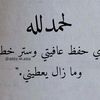 لحمد لله
ي حفظ عافيتي وستر خط
وما زال يعطيني."